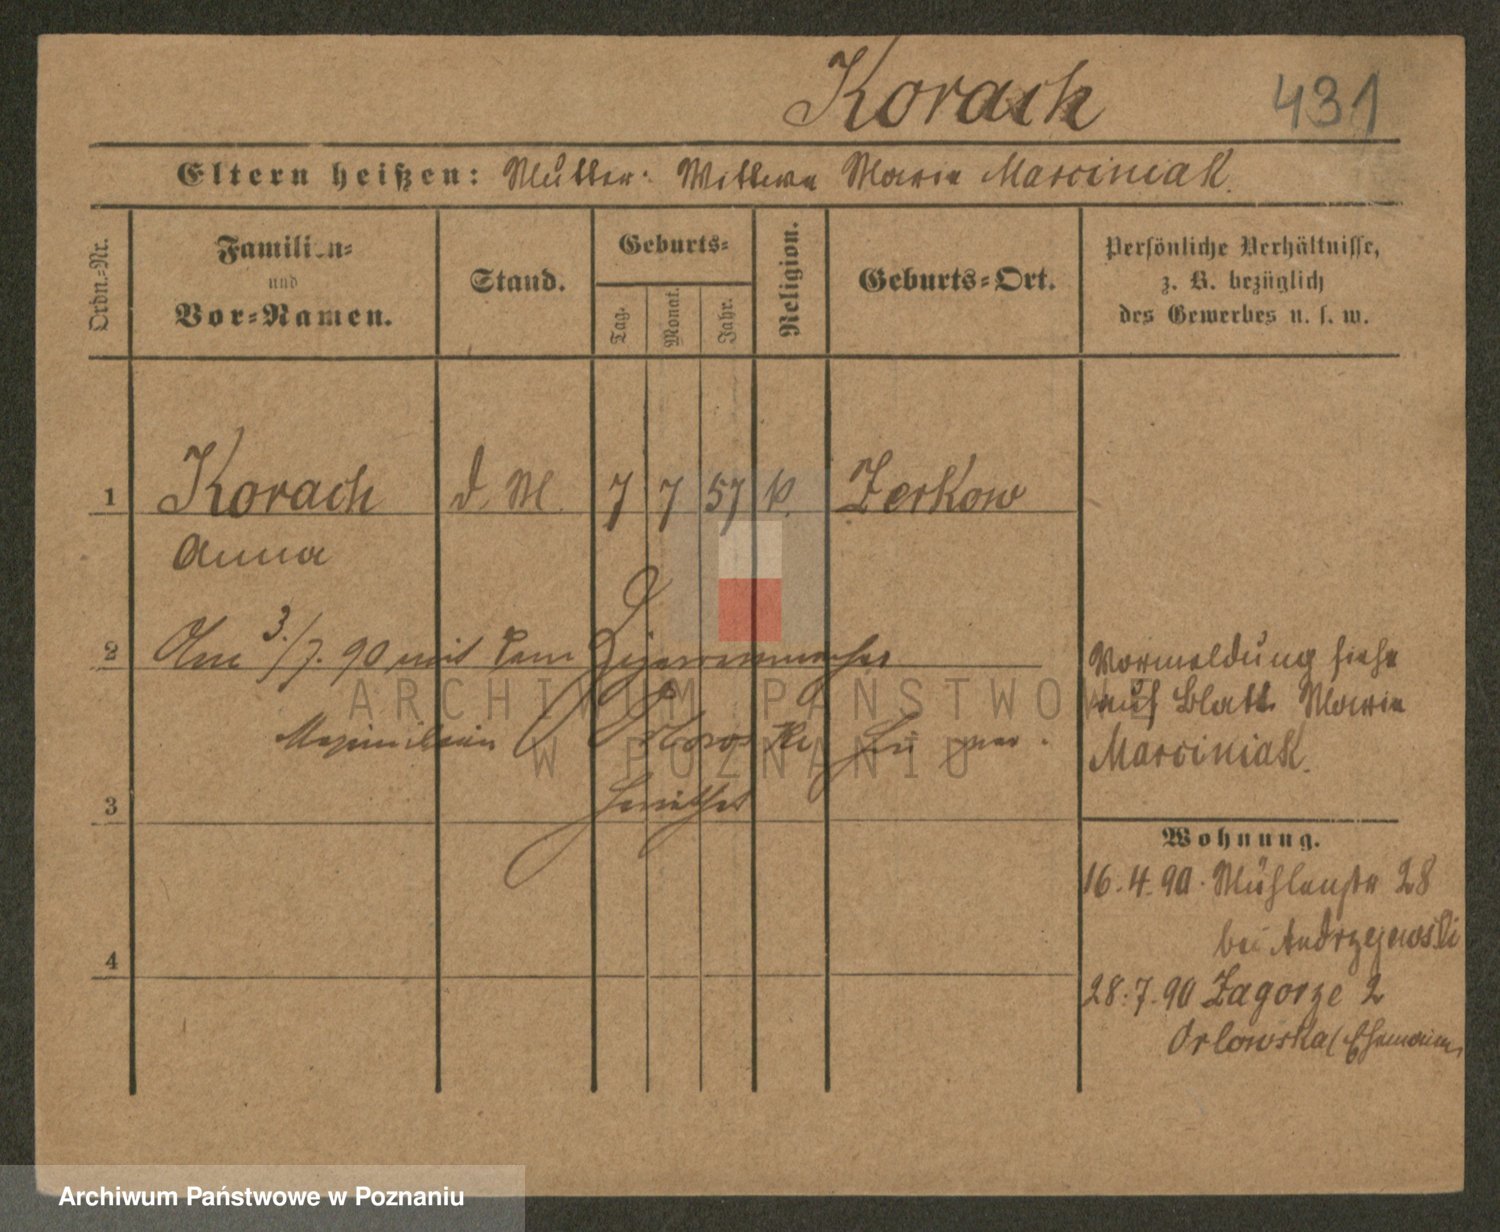 Korach
431
Eltern heißen: Mutter: Wittwe Marie Marciniak.
Ordn.-Nr.
Familien-
und
Vor-Namen.
Stand.
Geburts-
Tag.
Monat.
Jahr.
Religion.
Geburts-Ort.
Persönliche Verhältnisse,
z. B. bezüglich
des Gewerbes u. s. w.
1 Korach d. M. 7 7 57 k. Zerkow
Anna
2 Am 3./7. 90 mit dem Zigarrenmacher
Maximilian
3
4
Vormeldung siehe
auf Blatt Marie
Marciniak.
Wohnung.
16.4.90. Mühlenstr 28
bei Andrzejewski
28.7.90 Zagorze 2
Orlowska (Ehemann
ARCHIWUM PAŃSTWOWE
W POZNANIU
Archiwum Państwowe w Poznaniu